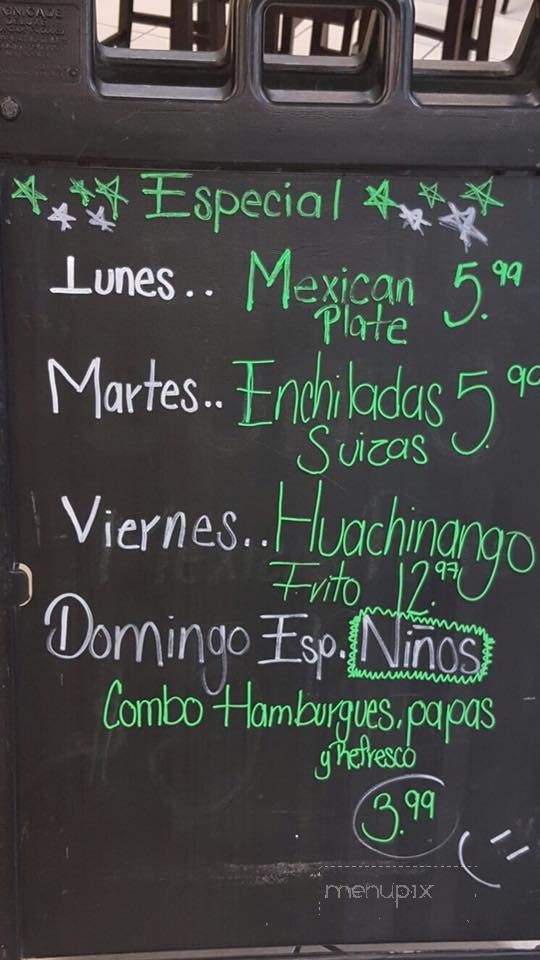 Especial
Lunes.. Mexican 5.99
Plate
Martes.. Enchiladas 5.90
Suizas
Viernes.. Huachinango
Frito 12.97
Domingo Esp. Niños
Combo Hamburgues, papas
y Refresco
3.99
menupix